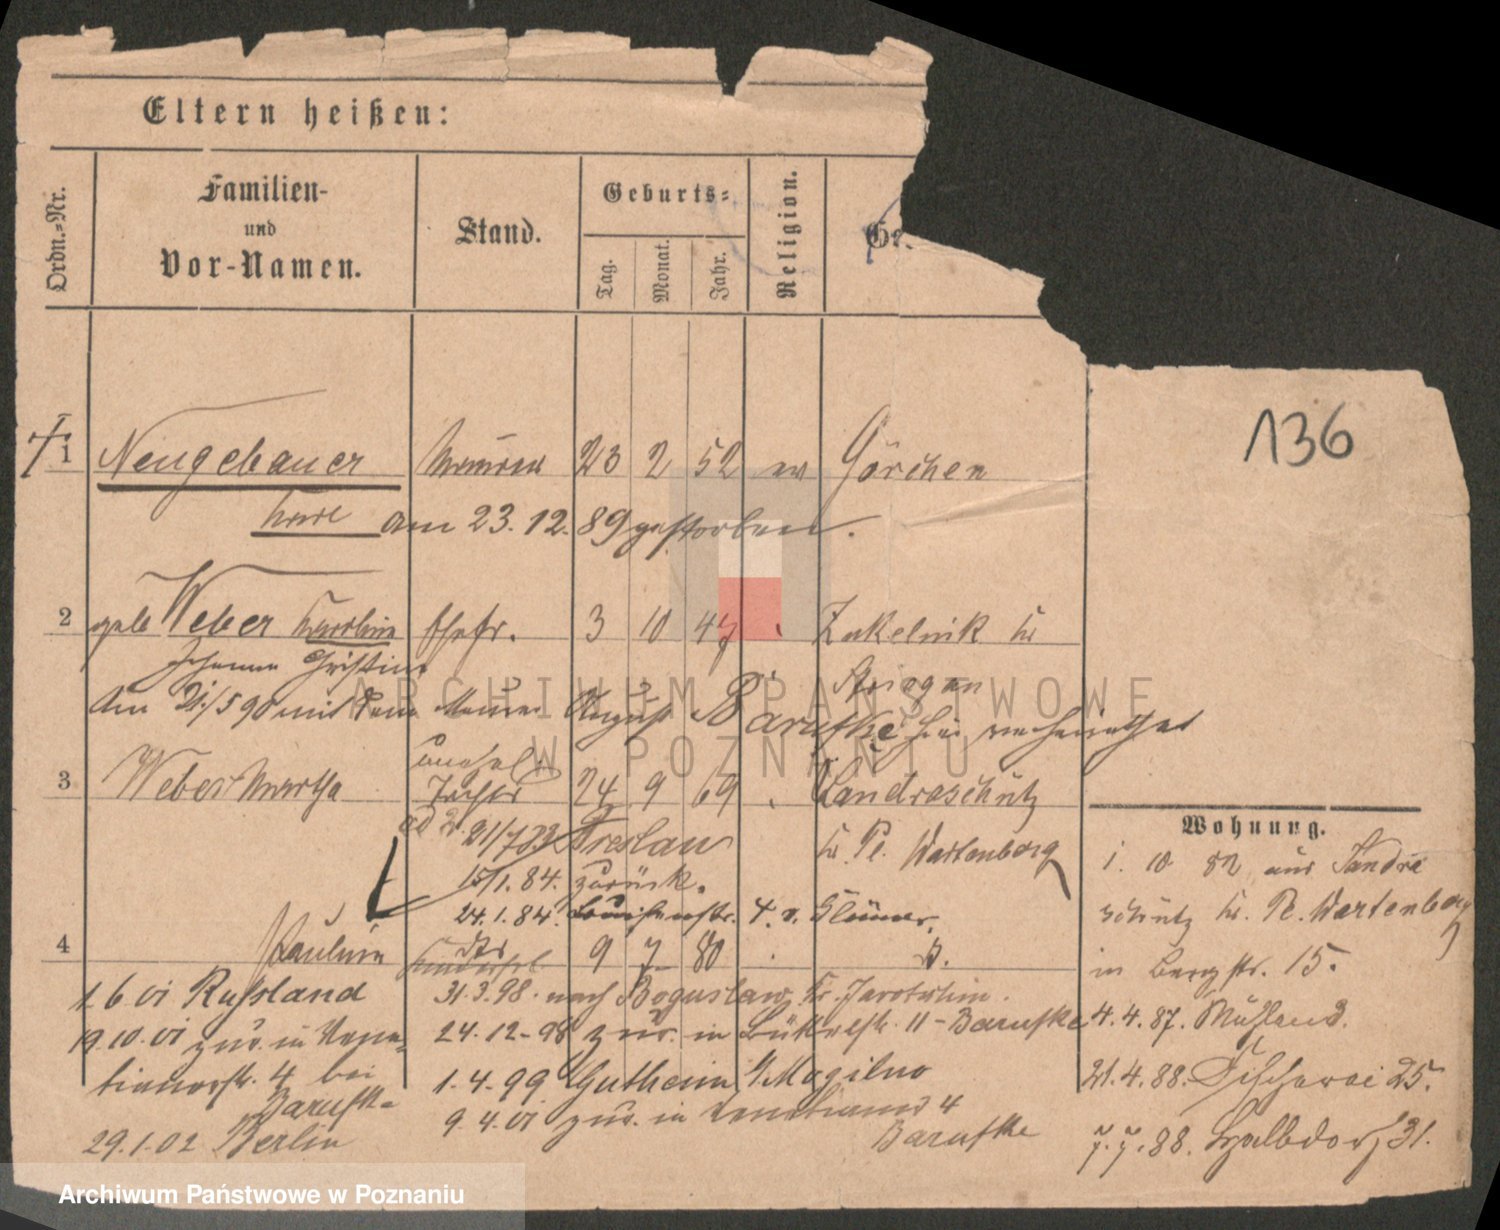 Eltern heißen:
Ordn.-Nr.
Familien-
und
Vor-Namen.
Stand.
Geburts-
Tag.
Monat.
Jahr.
Religion.
Ge
136
1 Neugebauer Maurer 23 2 52 ev Görchen
am 23.12.89 gestorben.
2 geb Weber Ehefr. 3 10 47 Kr
Johanna Christine
Am 21/5 90 mit dem Maurer August Barufke hier verheirathet
3 Weber Martha unehel. Tochter 24 9 69 Landraschütz
Kr. P. Wartenberg
21/7 83 Breslau
15/1.84. zurück.
24.1.84.
4 Pauline 9 7 80 B.
1 6 01 Russland
19.10.01 zur. in
4 bei
Barufke
29.1.02 Berlin
31.3.98. nach Boguslaw Kr. Jarotschin.
24.12.98 zur. in 11 Barufke
1.4.99 Gutheim Mogilno
9.4.01 zur. in 4
Barufke
Wohnung.
1. 10 82 aus Landra
schütz Kr. P. Wartenberg
in Bergstr. 15.
4.4.87.
21.4.88. Fischerei 25.
7.7.88. Halbdorf 31.
ARCHIWUM PAŃSTWOWE
W POZNANIU
Archiwum Państwowe w Poznaniu